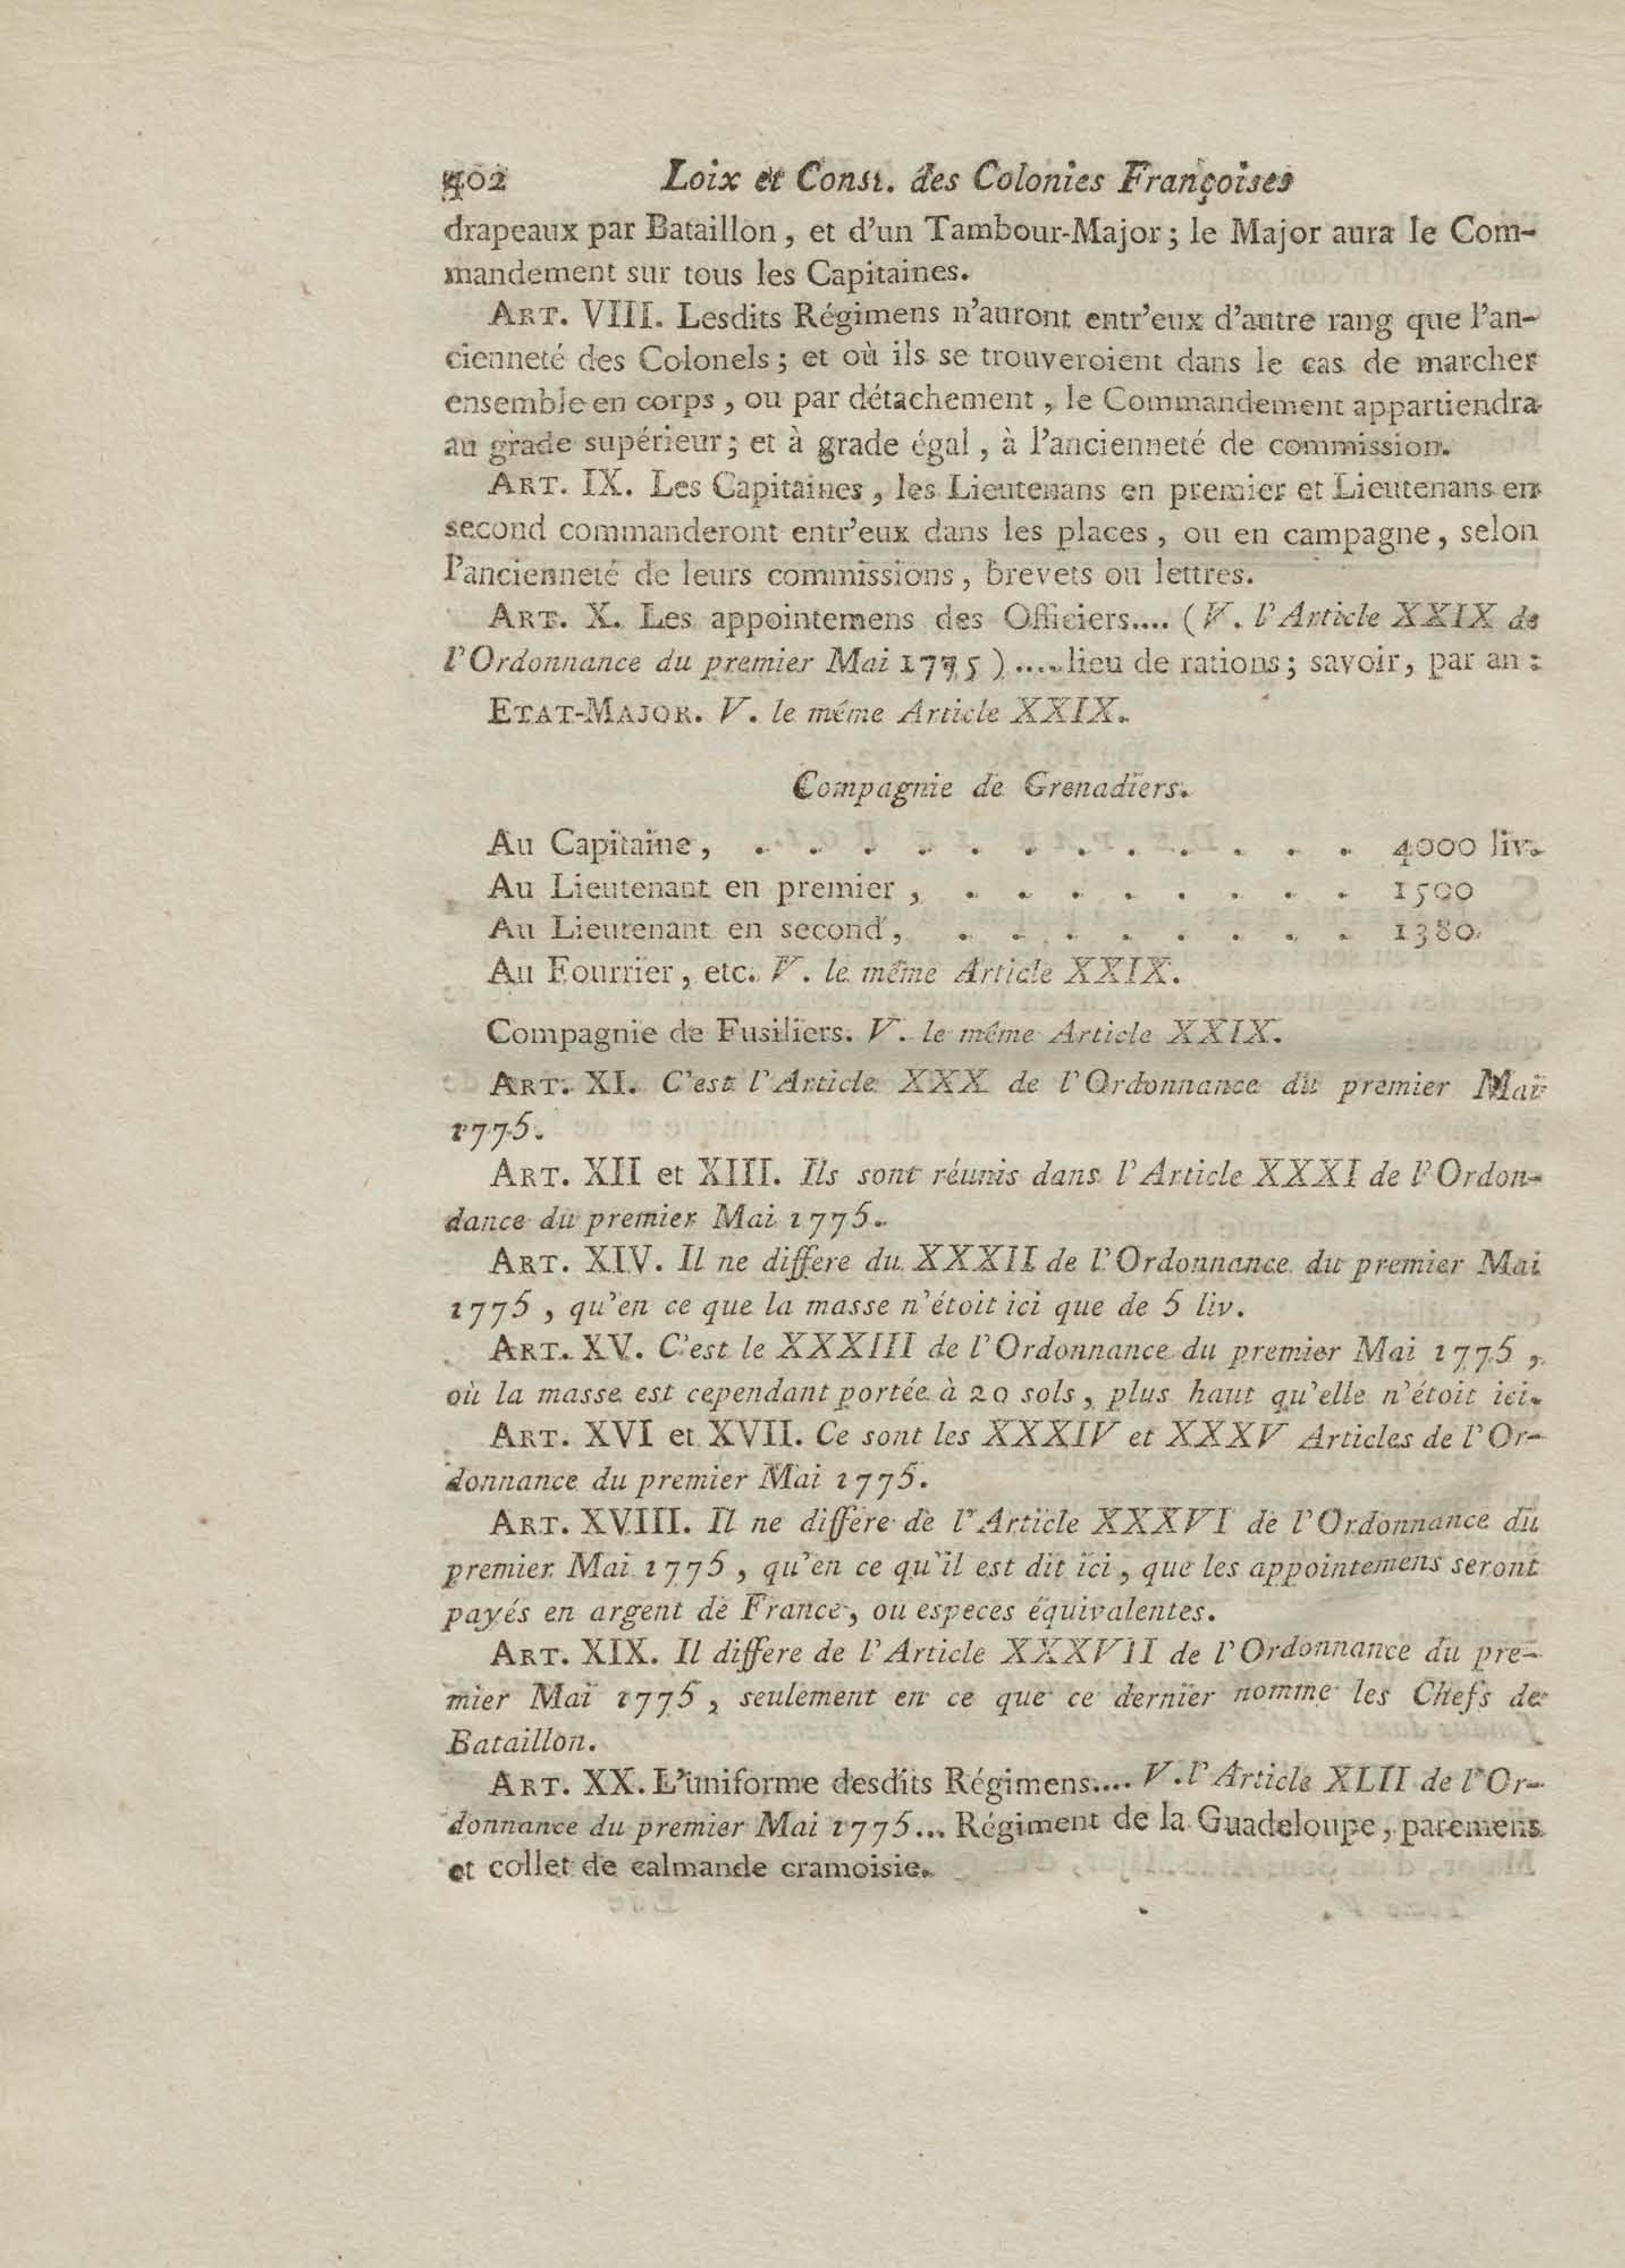 402 Loix et Const. des Colonies Françoises
drapeaux par Bataillon, et d'un Tambour-Major; le Major aura le Com-
mandement sur tous les Capitaines.
ART. VIII. Lesdits Régimens n'auront entr'eux d'autre rang que l'an-
cienneté des Colonels; et où ils se trouveroient dans le cas de marcher
ensemble en corps, ou par détachement, le Commandement appartiendra
au grade supérieur; et à grade égal, à l'ancienneté de commission.
ART. IX. Les Capitaines, les Lieutenans en premier et Lieutenans en
second commanderont entr'eux dans les places, ou en campagne, selon
l'ancienneté de leurs commissions, brevets ou lettres.
ART. X. Les appointemens des Officiers.... (V. l'Article XXIX de
l'Ordonnance du premier Mai 1775).....lieu de rations; savoir, par an:
ETAT-MAJOR. V. le même Article XXIX.
Compagnie de Grenadiers.
Au Capitaine, . . . . . . . . . . . . 4000 liv.
Au Lieutenant en premier, . . . . . . . . 1500
Au Lieutenant en second, . . . . . . . . 1380.
Au Fourrier, etc. V. le même Article XXIX.
Compagnie de Fusiliers. V. le même Article XXIX.
ART. XI. C'est l'Article XXX de l'Ordonnance du premier Mai
1775.
ART. XII et XIII. Ils sont réunis dans l'Article XXXI de l'Ordon-
dance du premier Mai 1775.
ART. XIV. Il ne differe du XXXII de l'Ordonnance du premier Mai
1775, qu'en ce que la masse n'étoit ici que de 5 liv.
ART. XV. C'est le XXXIII de l'Ordonnance du premier Mai 1775,
où la masse est cependant portée à 20 sols, plus haut qu'elle n'étoit ici.
ART. XVI et XVII. Ce sont les XXXIV et XXXV Articles de l'Or-
donnance du premier Mai 1775.
ART. XVIII. Il ne différe de l'Article XXXVI de l'Ordonnance du
premier Mai 1775, qu'en ce qu'il est dit ici, que les appointemens seront
payés en argent de France, ou especes équivalentes.
ART. XIX. Il differe de l'Article XXXVII de l'Ordonnance du pre-
mier Mai 1775, seulement en ce que ce dernier nomme les Chefs de
Bataillon.
ART. XX. L'uniforme desdits Régimens.... V. l'Article XLII de l'Or-
donnance du premier Mai 1775... Régiment de la Guadeloupe, paremens
et collet de calmande cramoisie.